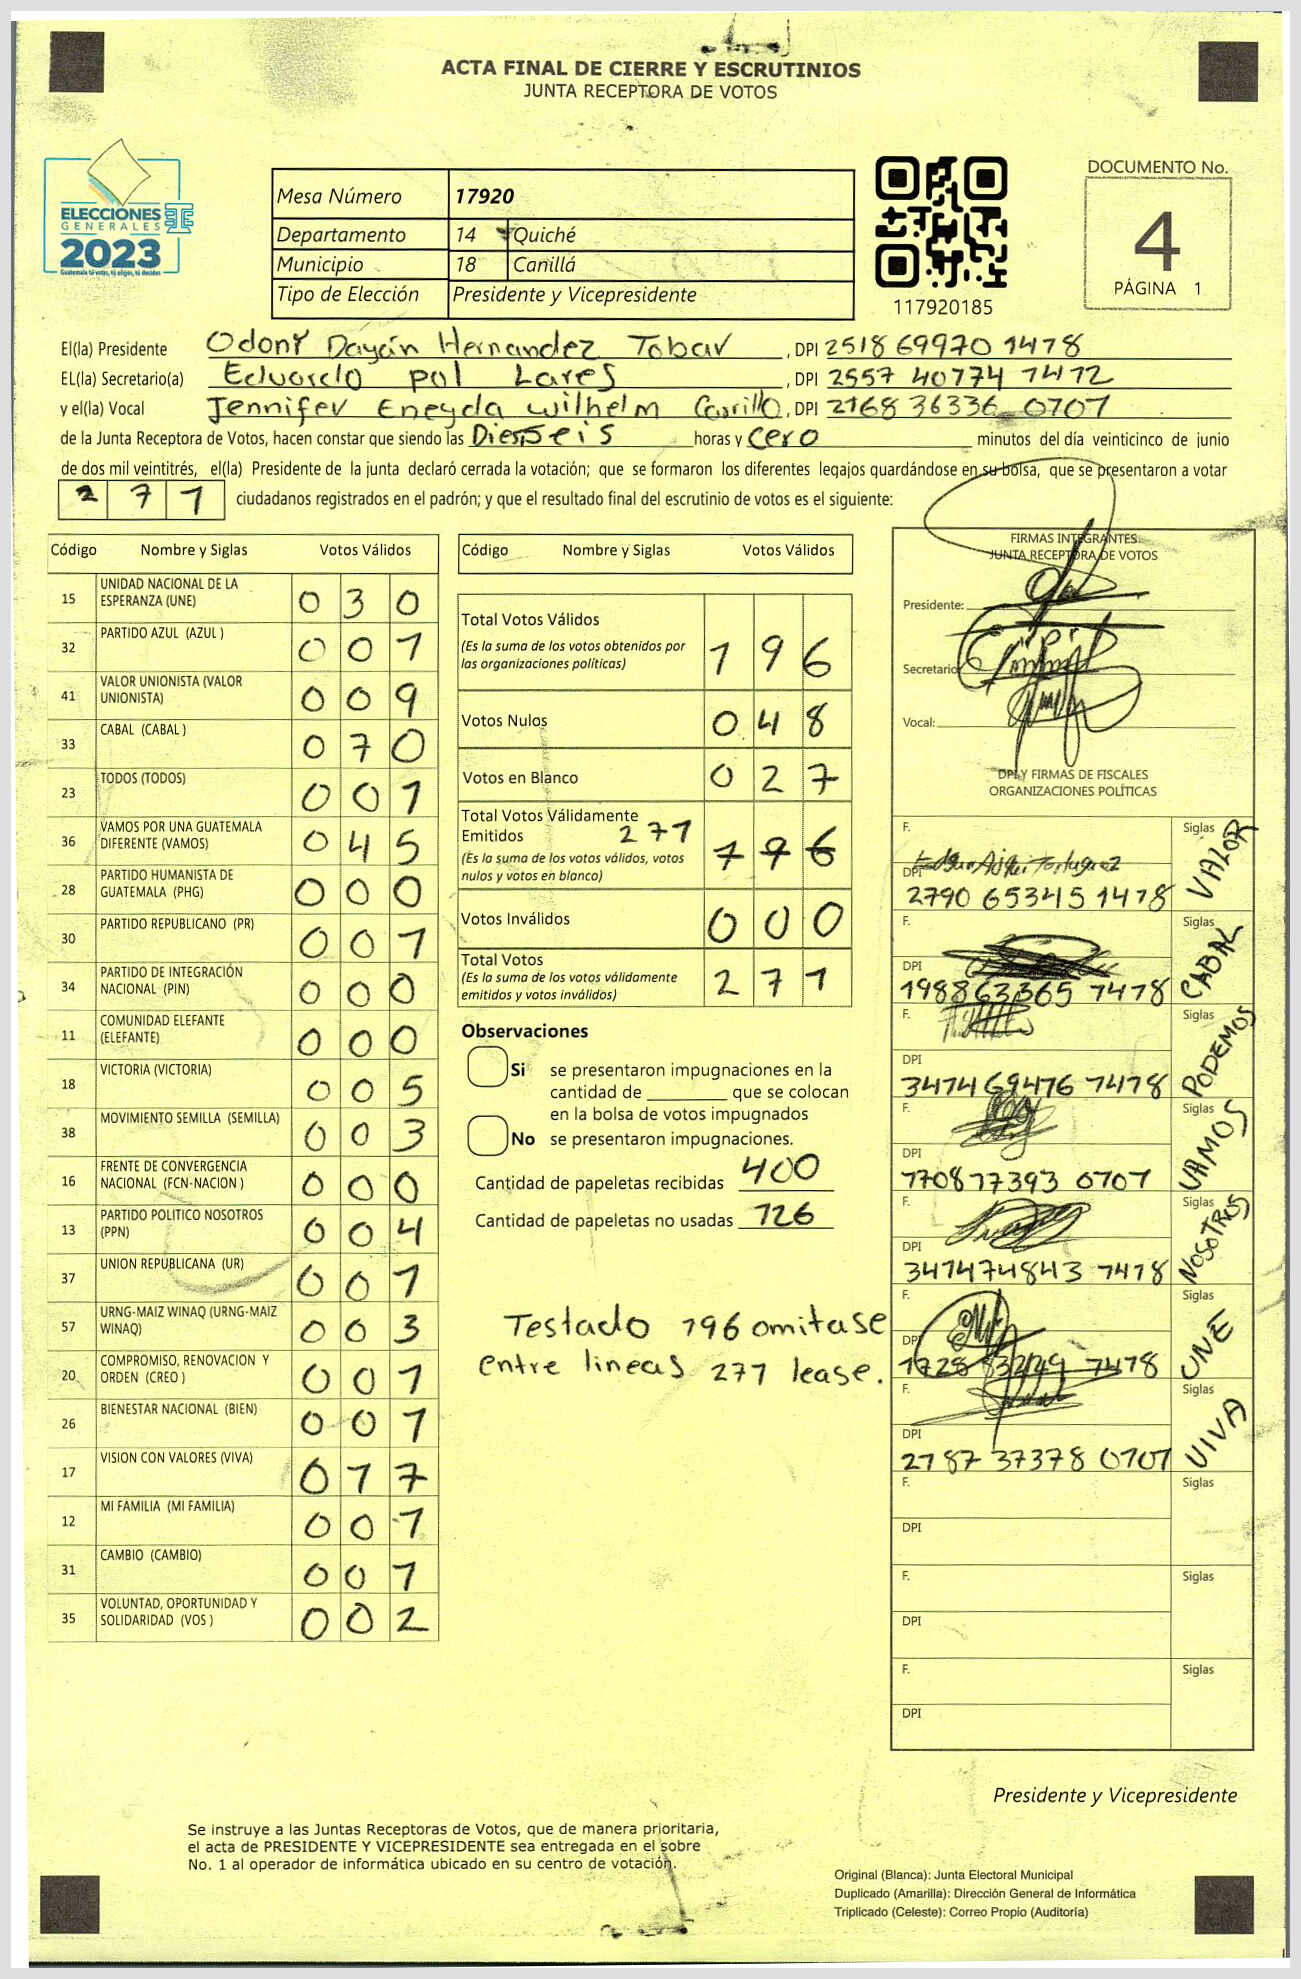 ACTA FINAL DE CIERRE Y ESCRUTINIOS
JUNTA RECEPTORA DE VOTOS
ELECCIONES
GENERALES
2023
Guatemala tú votas, tú eliges, tú decides
Mesa Número 17920
Departamento 14 Quiché
Municipio 18 Canillá
Tipo de Elección Presidente y Vicepresidente
117920185
DOCUMENTO No.
4
PÁGINA 1
El(la) Presidente Odony Dayán Hernandez Tobar , DPI 2518 69970 1418
EL(la) Secretario(a) Eduardo pol Lares , DPI 2557 40774 1412
y el(la) Vocal Jennifer Eneyda Wilhelm Carrillo , DPI 2168 36336 0101
de la Junta Receptora de Votos, hacen constar que siendo las Dieciseis horas y cero minutos del día veinticinco de junio
de dos mil veintitrés, el(la) Presidente de la junta declaró cerrada la votación; que se formaron los diferentes legajos guardándose en su bolsa, que se presentaron a votar
2 7 1 ciudadanos registrados en el padrón; y que el resultado final del escrutinio de votos es el siguiente:
Código Nombre y Siglas Votos Válidos
15 UNIDAD NACIONAL DE LA ESPERANZA (UNE) 0 3 0
32 PARTIDO AZUL (AZUL ) 0 0 1
41 VALOR UNIONISTA (VALOR UNIONISTA) 0 0 9
33 CABAL (CABAL ) 0 7 0
23 TODOS (TODOS) 0 0 1
36 VAMOS POR UNA GUATEMALA DIFERENTE (VAMOS) 0 4 5
28 PARTIDO HUMANISTA DE GUATEMALA (PHG) 0 0 0
30 PARTIDO REPUBLICANO (PR) 0 0 1
34 PARTIDO DE INTEGRACIÓN NACIONAL (PIN) 0 0 0
11 COMUNIDAD ELEFANTE (ELEFANTE) 0 0 0
18 VICTORIA (VICTORIA) 0 0 5
38 MOVIMIENTO SEMILLA (SEMILLA) 0 0 3
16 FRENTE DE CONVERGENCIA NACIONAL (FCN-NACION ) 0 0 0
13 PARTIDO POLITICO NOSOTROS (PPN) 0 0 4
37 UNION REPUBLICANA (UR) 0 0 1
57 URNG-MAIZ WINAQ (URNG-MAIZ WINAQ) 0 0 3
20 COMPROMISO, RENOVACION Y ORDEN (CREO ) 0 0 1
26 BIENESTAR NACIONAL (BIEN) 0 0 1
17 VISION CON VALORES (VIVA) 0 1 7
12 MI FAMILIA (MI FAMILIA) 0 0 1
31 CAMBIO (CAMBIO) 0 0 1
35 VOLUNTAD, OPORTUNIDAD Y SOLIDARIDAD (VOS ) 0 0 2
Código Nombre y Siglas Votos Válidos
Total Votos Válidos 1 9 6
(Es la suma de los votos obtenidos por
las organizaciones políticas)
Votos Nulos 0 4 8
Votos en Blanco 0 2 7
Total Votos Válidamente
Emitidos 271 1 9 6
(Es la suma de los votos válidos, votos
nulos y votos en blanco)
Votos Inválidos 0 0 0
Total Votos 2 7 1
(Es la suma de los votos válidamente
emitidos y votos inválidos)
Observaciones
Si se presentaron impugnaciones en la
cantidad de ________ que se colocan
en la bolsa de votos impugnados
No se presentaron impugnaciones.
Cantidad de papeletas recibidas 400
Cantidad de papeletas no usadas 126
Testado 196 omitase
entre lineas 271 lease.
FIRMAS INTEGRANTES
JUNTA RECEPTORA DE VOTOS
Presidente:
Secretario
Vocal:
DPI Y FIRMAS DE FISCALES
ORGANIZACIONES POLÍTICAS
F. Siglas VALOR
DPI 2190 65345 1418
F. Siglas CABAL
DPI 1988 63365 1418
F. Siglas PODEMOS
DPI 3414 69476 1418
F. Siglas VAMOS
DPI 1708 77393 0101
F. Siglas NOSOTROS
DPI 3414 74843 1418
F. Siglas UNE
DPI 1418
F. Siglas VIVA
DPI 2187 37378 0101
F. Siglas
DPI
F. Siglas
DPI
F. Siglas
DPI
Presidente y Vicepresidente
Se instruye a las Juntas Receptoras de Votos, que de manera prioritaria,
el acta de PRESIDENTE Y VICEPRESIDENTE sea entregada en el sobre
No. 1 al operador de informática ubicado en su centro de votación.
Original (Blanca): Junta Electoral Municipal
Duplicado (Amarilla): Dirección General de Informática
Triplicado (Celeste): Correo Propio (Auditoría)